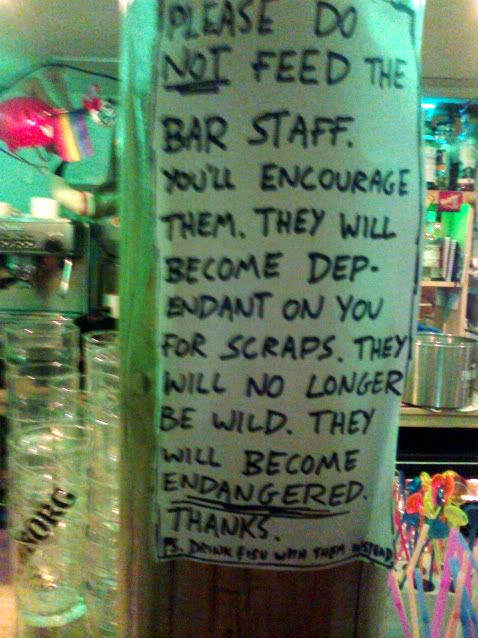 PLEASE DO
NOT FEED THE
BAR STAFF.
YOU'LL ENCOURAGE
THEM. THEY WILL
BECOME DEP-
ENDANT ON YOU
FOR SCRAPS. THEY
WILL NO LONGER
BE WILD. THEY
WILL BECOME
ENDANGERED.
THANKS.
PS. DRINK FISH WITH THEM INSTEAD
BORG